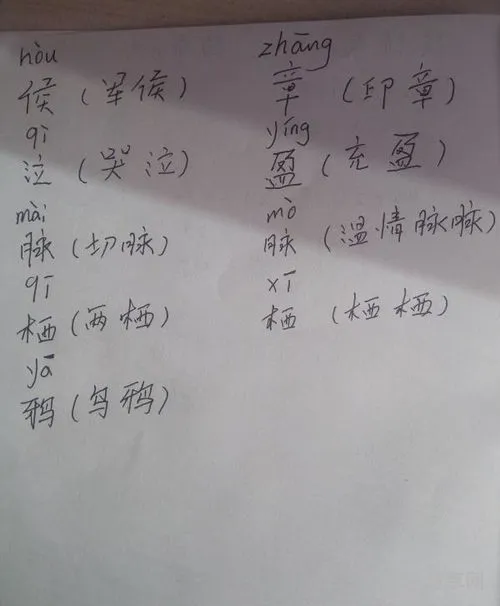 hòu zhāng
侯(军侯) 章(印章)
qì yíng
泣(哭泣) 盈(充盈)
mài mò
脉(切脉) 脉(温情脉脉)
qī xī
栖(两栖) 栖(栖栖)
yā
鸦(乌鸦)